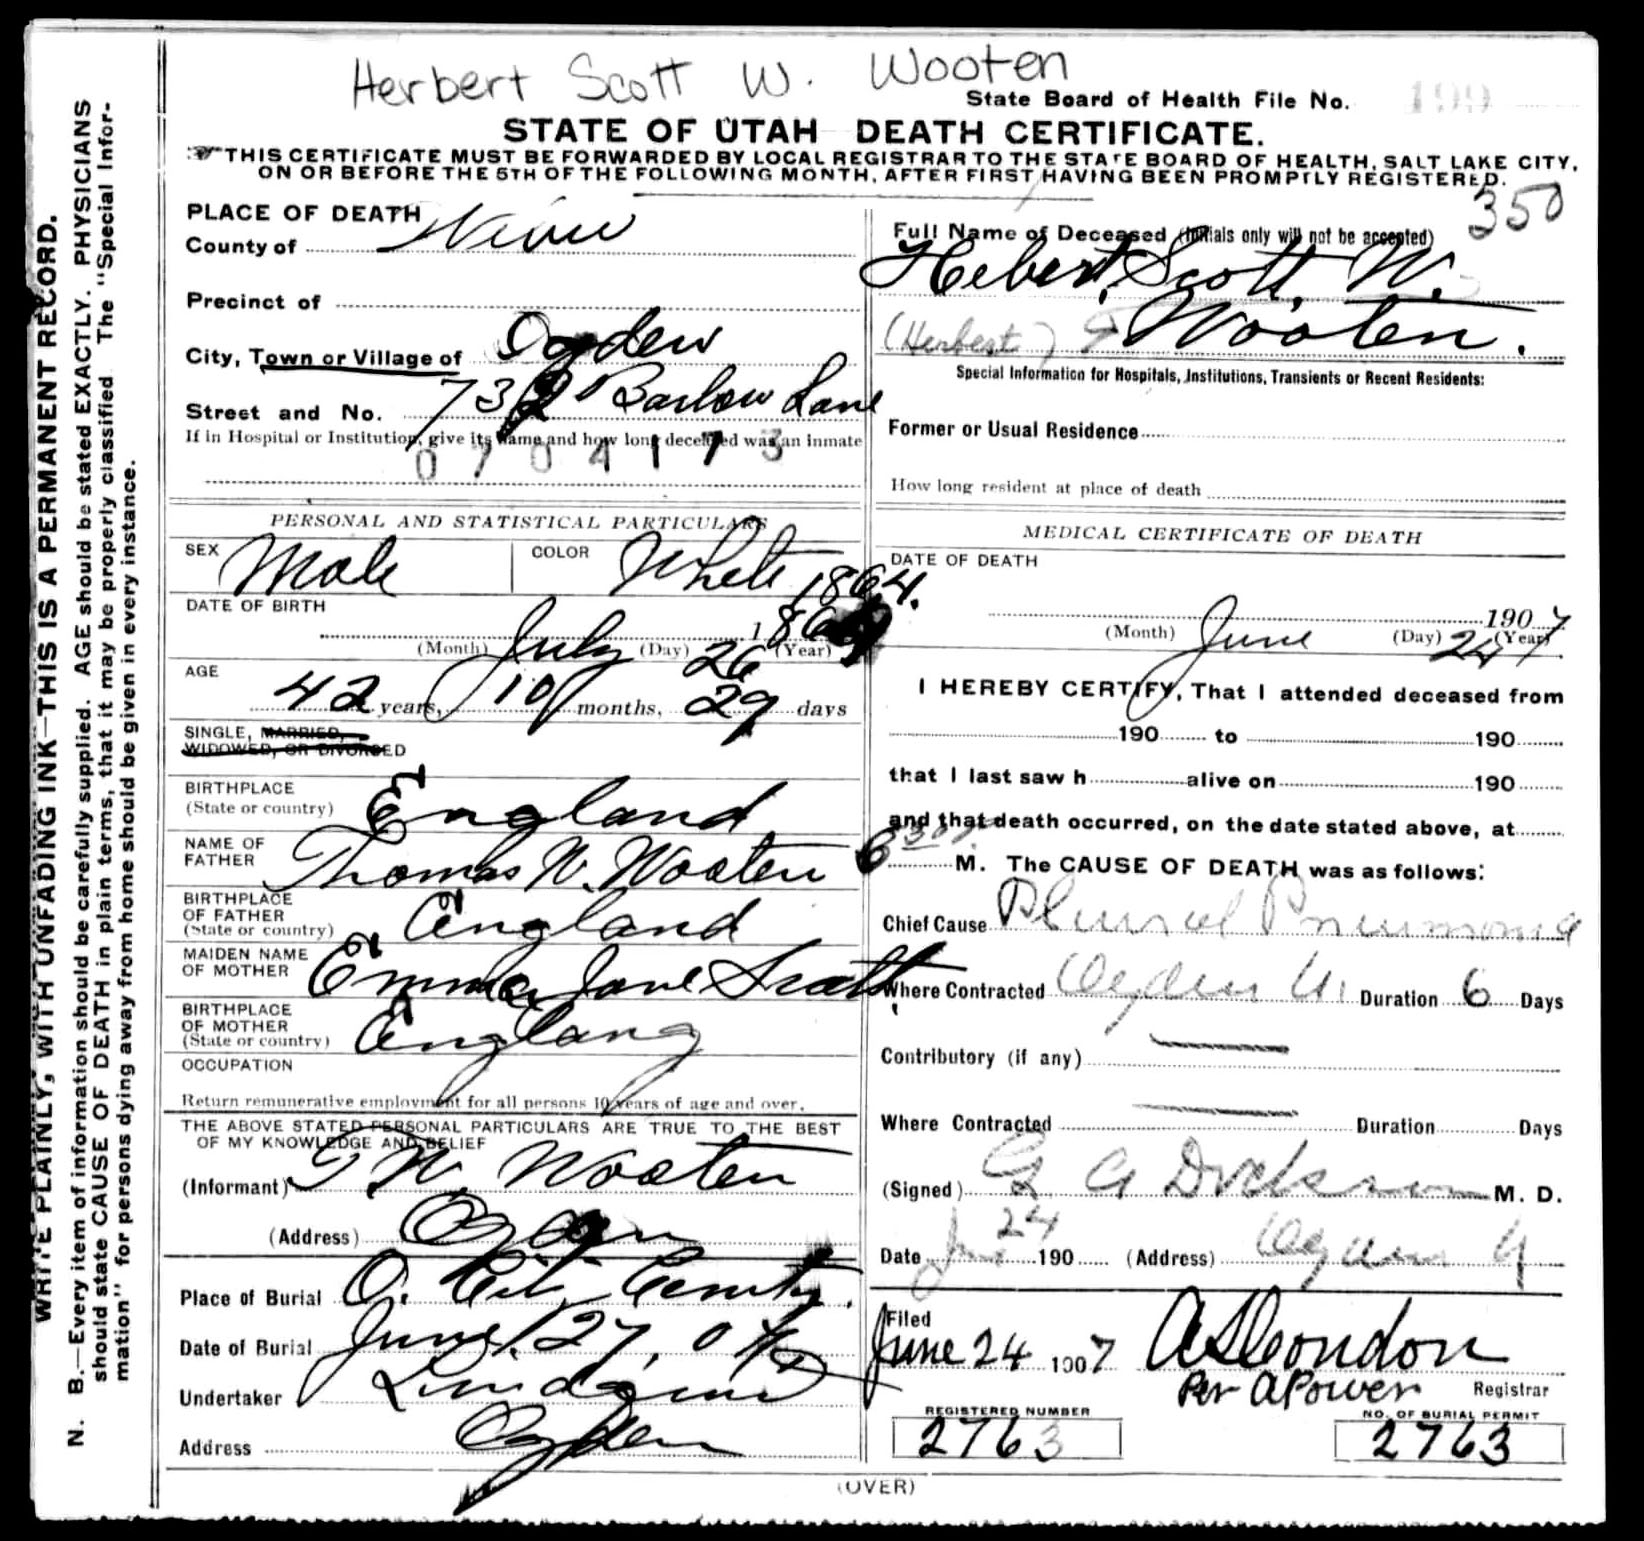 Herbert Scott W. Wooten
State Board of Health File No. 199
STATE OF UTAH DEATH CERTIFICATE.
THIS CERTIFICATE MUST BE FORWARDED BY LOCAL REGISTRAR TO THE STATE BOARD OF HEALTH, SALT LAKE CITY,
ON OR BEFORE THE 5TH OF THE FOLLOWING MONTH, AFTER FIRST HAVING BEEN PROMPTLY REGISTERED.
350
WRITE PLAINLY, WITH UNFADING INK—THIS IS A PERMANENT RECORD.
N. B.—Every item of information should be carefully supplied. AGE should be stated EXACTLY. PHYSICIANS
should state CAUSE OF DEATH in plain terms, that it may be properly classified The "Special Infor-
mation" for persons dying away from home should be given in every instance.
PLACE OF DEATH
County of
Precinct of
City, Town or Village of Ogden
Street and No. Barlow Lane
If in Hospital or Institution, give its name and how long deceased was an inmate
0704173
PERSONAL AND STATISTICAL PARTICULARS
SEX Male COLOR White
DATE OF BIRTH 1864.
(Month) July (Day) 26 (Year)
AGE
42 years, 10 months, 29 days
SINGLE, MARRIED,
WIDOWED, OR DIVORCED
BIRTHPLACE
(State or country) England
NAME OF
FATHER Thomas W. Wooten
BIRTHPLACE
OF FATHER
(State or country) England
MAIDEN NAME
OF MOTHER Emma Jane Scott
BIRTHPLACE
OF MOTHER
(State or country) England
OCCUPATION
Return remunerative employment for all persons 10 years of age and over.
THE ABOVE STATED PERSONAL PARTICULARS ARE TRUE TO THE BEST
OF MY KNOWLEDGE AND BELIEF
(Informant) T. W. Wooten
(Address) Ogden
Place of Burial O. Cit.
Date of Burial June 27, 07
Undertaker
Address Ogden
Full Name of Deceased (initials only will not be accepted)
Hebert, Scott, W.
(Herbert) Wooten.
Special Information for Hospitals, Institutions, Transients or Recent Residents:
Former or Usual Residence
How long resident at place of death
MEDICAL CERTIFICATE OF DEATH
DATE OF DEATH
1907
(Month) June (Day) 24 (Year) 7
I HEREBY CERTIFY, That I attended deceased from
190 to 190
that I last saw h alive on 190
and that death occurred, on the date stated above, at
6 30 M. The CAUSE OF DEATH was as follows:
Chief Cause Plural Pneumonia
Where Contracted Ogden U. Duration 6 Days
Contributory (if any)
Where Contracted Duration Days
(Signed) M. D.
Date June 24 190 (Address) Ogden U
Filed
June 24 1907 A S Condon
Per A Power Registrar
REGISTERED NUMBER
2763
NO. OF BURIAL PERMIT
2763
(OVER)